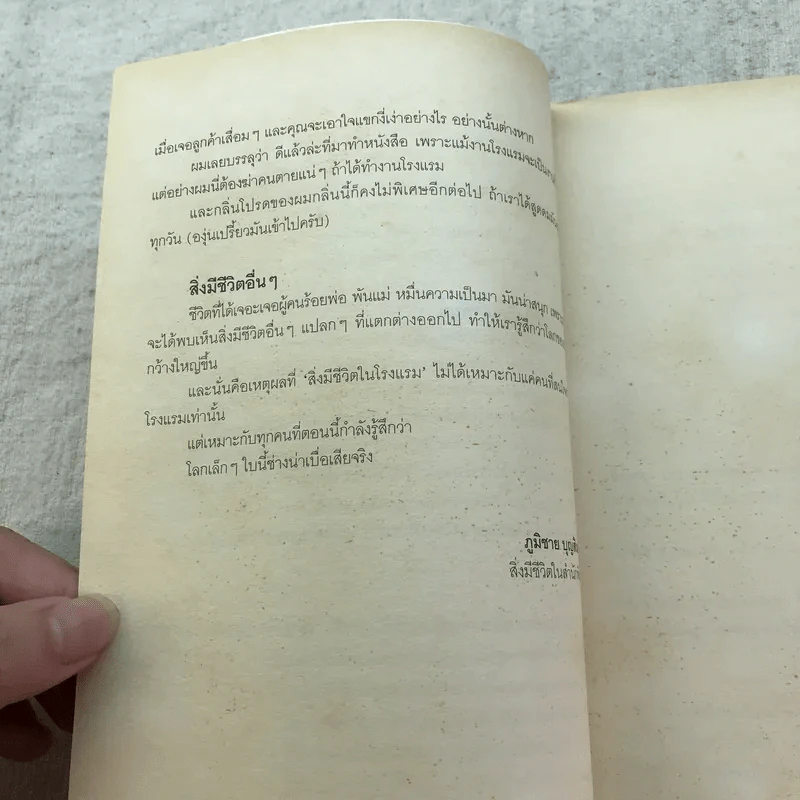 เมื่อเจอลูกค้าเสื่อมๆ และคุณจะเอาใจแขกงี่เง่าอย่างไร อย่างนั้นต่างหาก
ผมเลยบรรลุว่า ดีแล้วล่ะที่มาทำหนังสือ เพราะแม้งานโรงแรมจะเป็น
แต่อย่างผมนี่ต้องฆ่าคนตายแน่ๆ ถ้าได้ทำงานโรงแรม
และกลิ่นโปรดของผมกลิ่นนี้ก็คงไม่พิเศษอีกต่อไป ถ้าเราได้สูดดม
ทุกวัน (องุ่นเปรี้ยวมันเข้าไปครับ)
สิ่งมีชีวิตอื่นๆ
ชีวิตที่ได้เจอะเจอผู้คนร้อยพ่อ พันแม่ หมื่นความเป็นมา มันน่าสนุก
จะได้พบเห็นสิ่งมีชีวิตอื่นๆ แปลกๆ ที่แตกต่างออกไป ทำให้เรารู้สึกว่า
กว้างใหญ่ขึ้น
และนั่นคือเหตุผลที่ ‘สิ่งมีชีวิตในโรงแรม’ ไม่ได้เหมาะกับแค่คนที่
โรงแรมเท่านั้น
แต่เหมาะกับทุกคนที่ตอนนี้กำลังรู้สึกว่า
โลกเล็กๆ ใบนี้ช่างน่าเบื่อเสียจริง
ภูมิชาย
สิ่งมีชีวิตใน